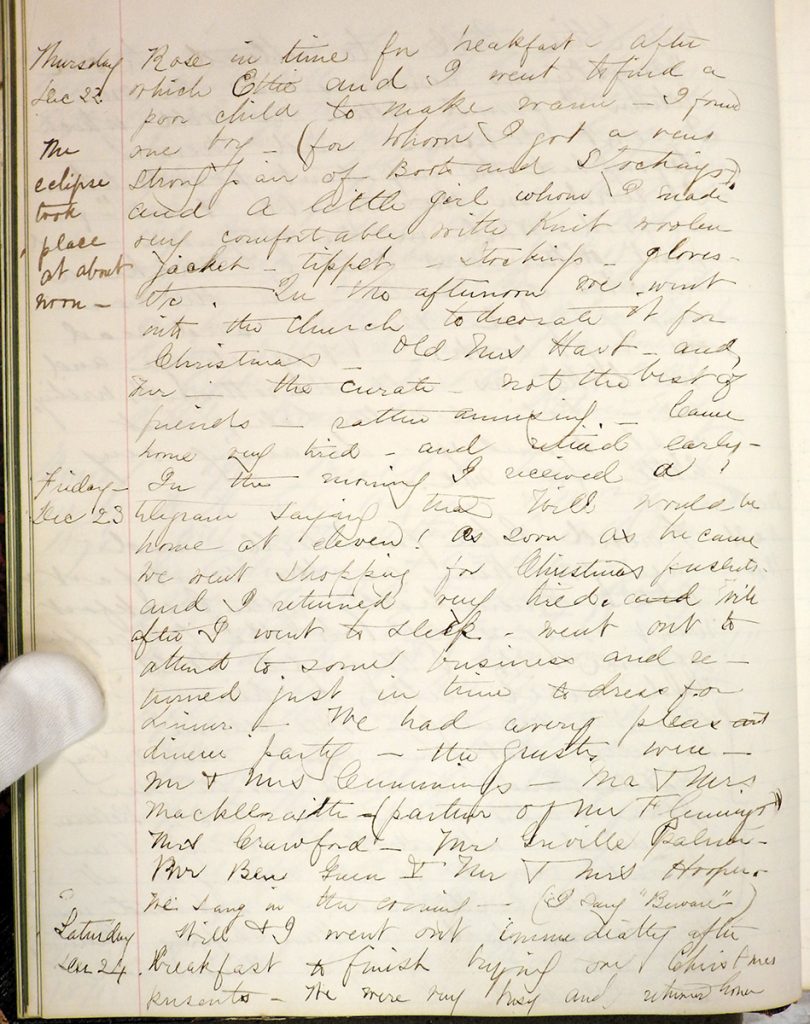 Thursday
Dec 22
Rose in time for breakfast - after
which Ettie and I went to find a
poor child to make warm - I found
one boy - (for whom I got a very
strong pair of Boots and Stockings)
and a little girl whom I made
very comfortable with Knit woolen
jacket - tippet - stockings - gloves -
etc. In the afternoon we went
into the church to decorate it for
Christmas - Old Mrs Hart - and
- the curate - not the best of
friends - rather amusing. - Came
home very tired - and retired early -
The
eclipse
took
place
at about
noon -
Friday -
Dec 23
In the morning I received a
telegram saying that Will would be
home at eleven! As soon as he came
we went shopping for Christmas presents -
and I returned very tired. and Will
after I went to sleep - went out to
attend to some business and re -
turned just in time to dress for
dinner - We had a very pleasant
dinner party - the guests were -
Mr & Mrs Cummings - Mr & Mrs.
(partner of Mr Flemings)
Mrs Crawford - Mr Palmer -
Ben & Mr & Mrs Hooper.
We sang in the evening - (I sang "Beware")
Saturday
Dec 24.
Will & I went out immediately after
breakfast to finish buying our Christmas
presents - We were very busy and returned home